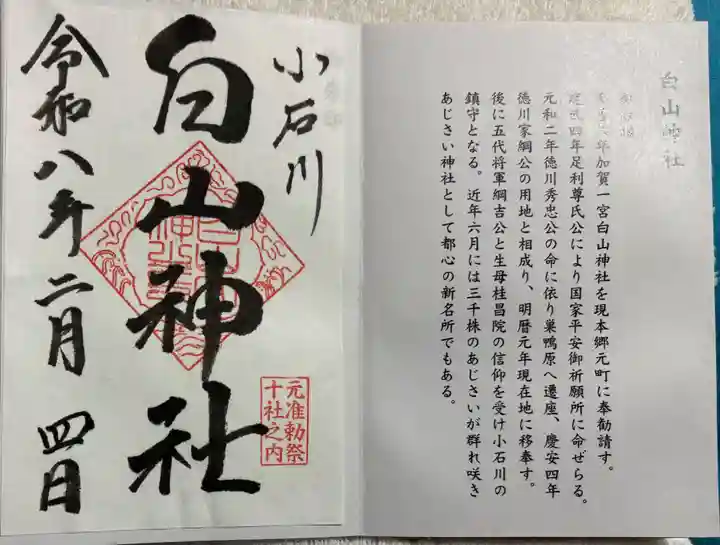 白山神社
年加賀一宮白山神社を現本郷元町に奉勧請す。
武四年足利尊氏公により国家平安御祈願所に命ぜらる。
元和二年徳川秀忠公の命に依り巣鴨原へ遷座、慶安四年
徳川家綱公の用地と相成り、明暦元年現在地に移奉す。
後に五代将軍綱吉公と生母桂昌院の信仰を受け小石川の
鎮守となる。近年六月には三千株のあじさいが群れ咲き
あじさい神社として都心の新名所でもある。
小石川
元准勅祭
十社之内
白山神社
令和八年二月四日